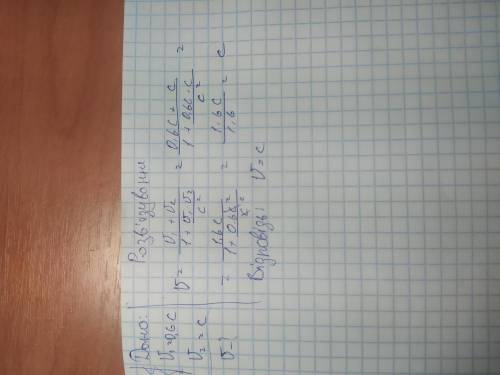 Дано:
v₁=0,6c
v₂=c
v-?
Розв'язування
v = (v₁+v₂)/(1+(v₁·v₂)/c²) = (0,6c+c)/(1+(0,6c·c)/c²) =
= 1,6c/(1+0,6c²/c²) = 1,6c/1,6 = c
Відповідь: v=c